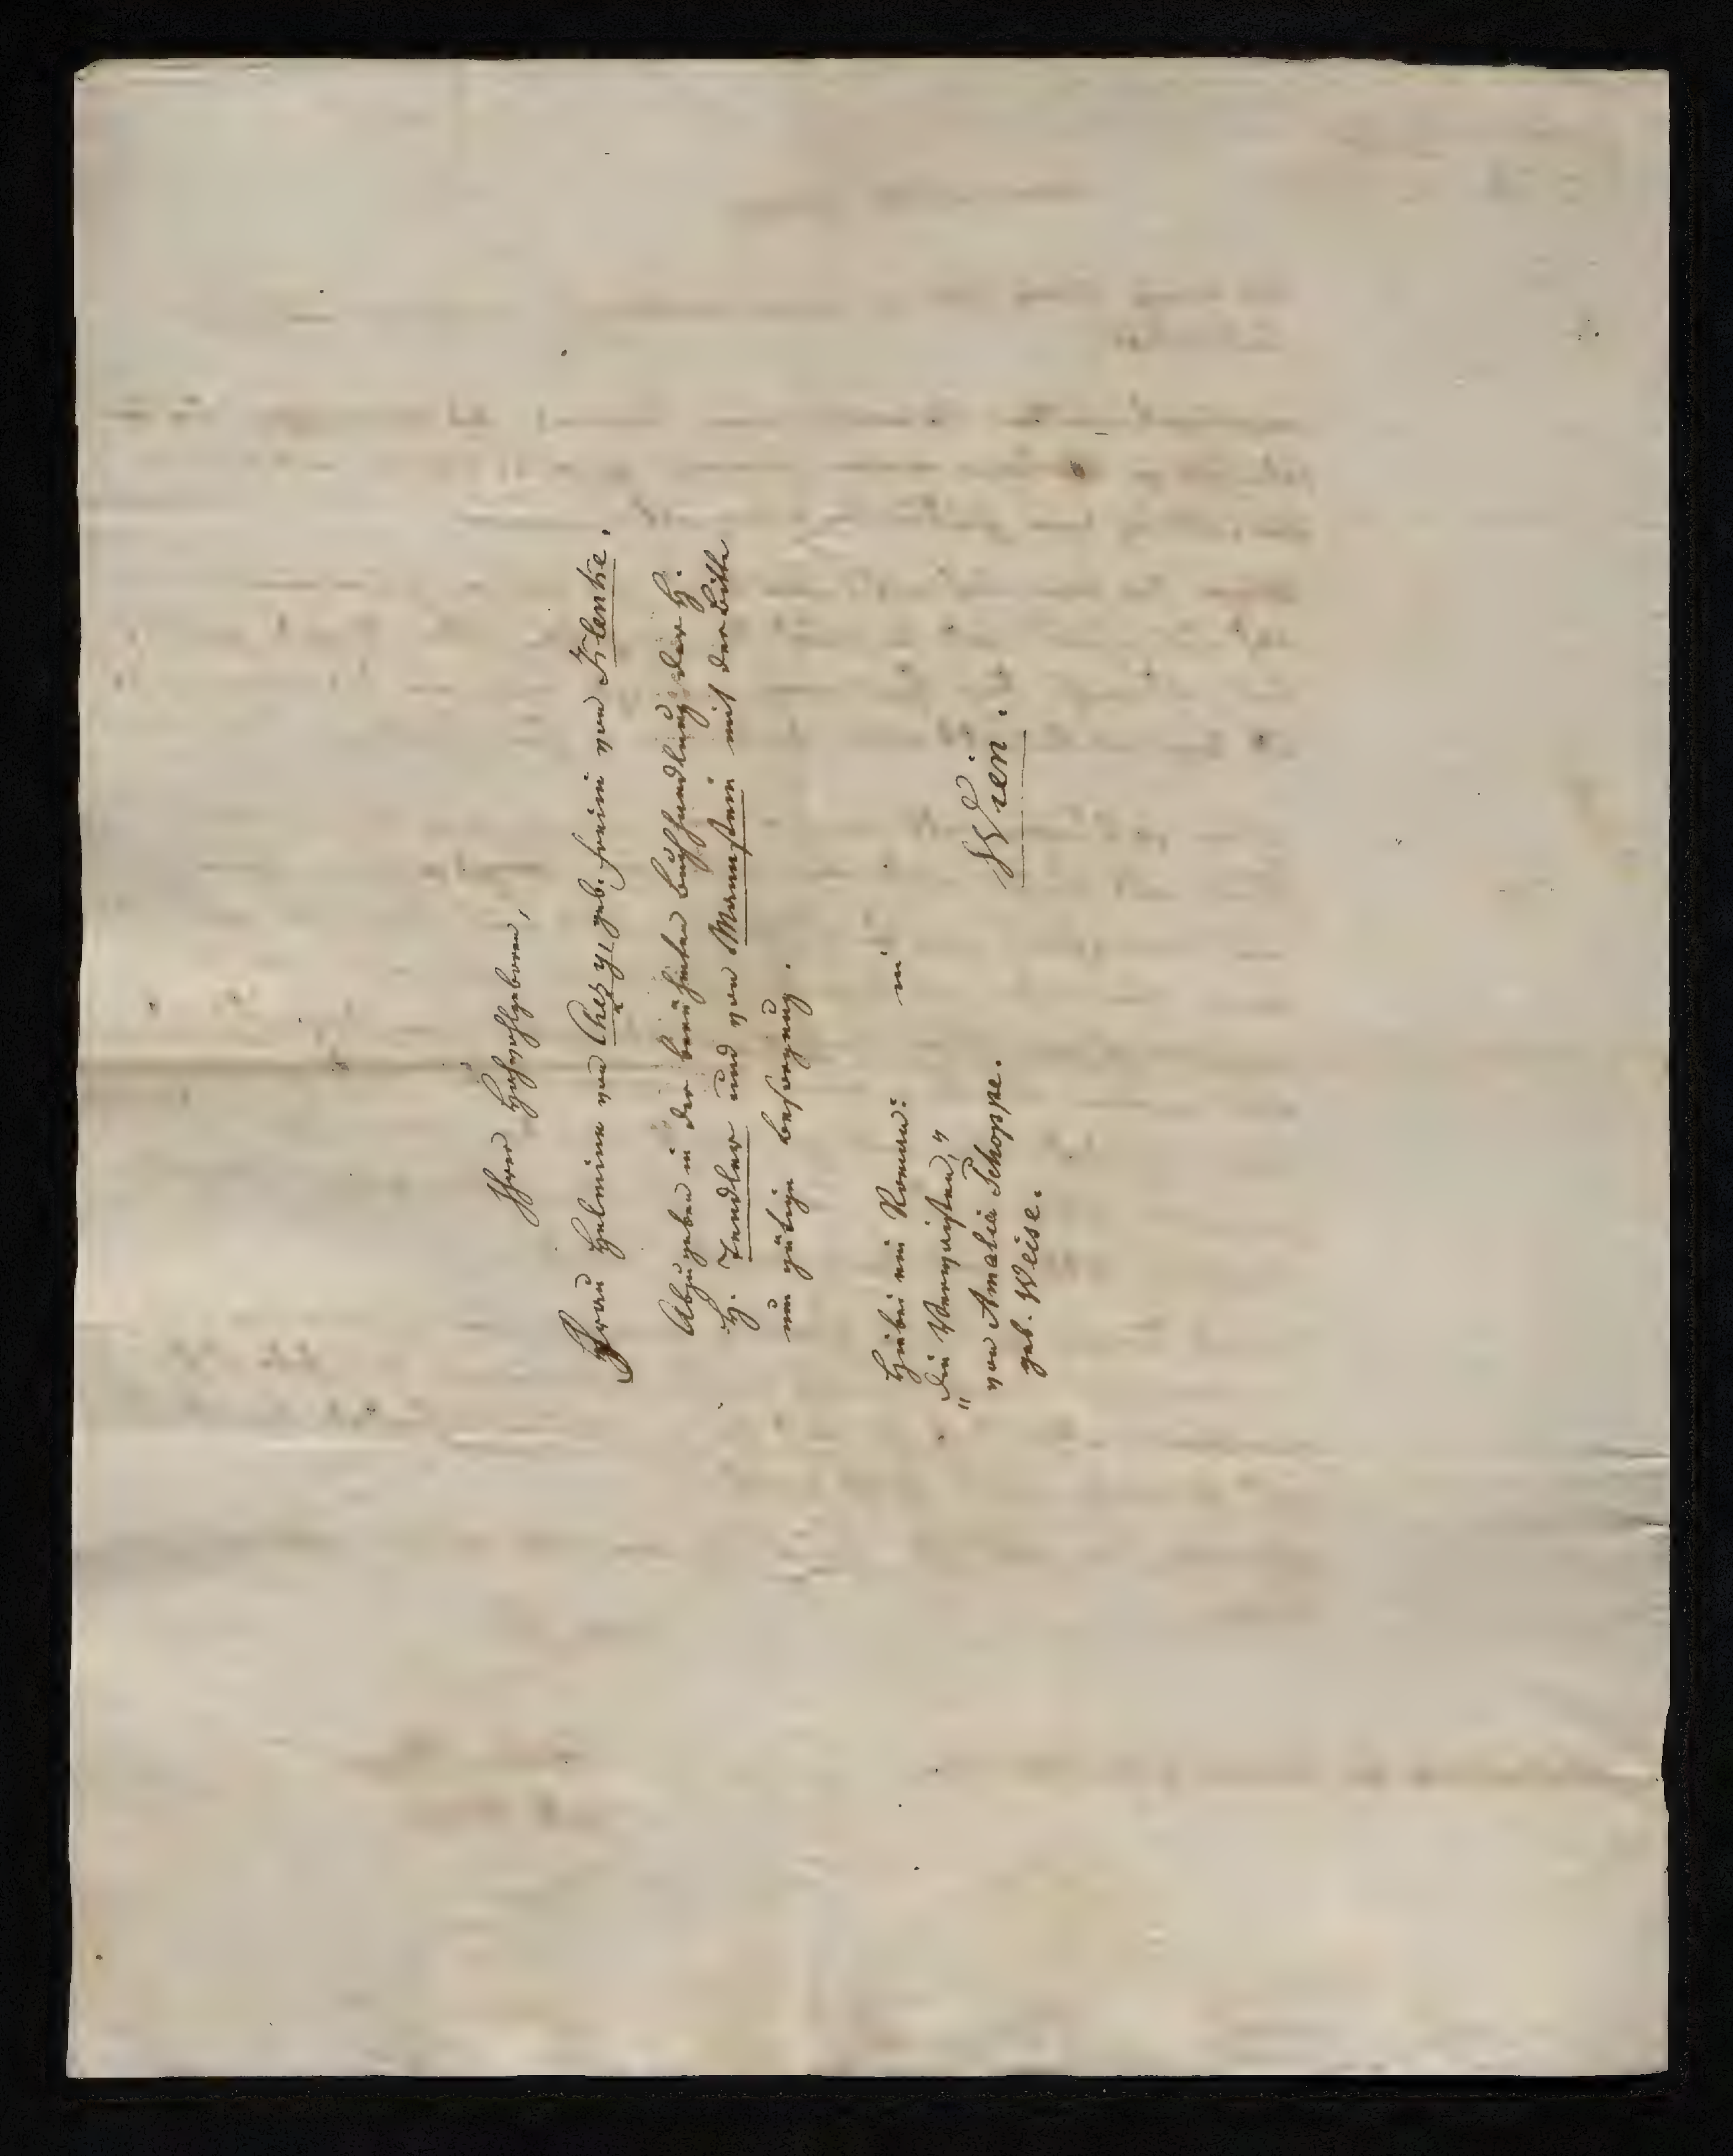 Ihrer Hochwohlgeboren,
Frau Helmine von Chezy, geb. Freiin von Klenke.
Abzugeben in der berühmten Buchhandlung der H.
H. Tendler und von Manstein mit der Bitte
um gütige Besorgung.
in
Wien.
Hiebei ein Roman:
„Die Verwaisten,“
von Amalia Schoppe.
geb. Weise.